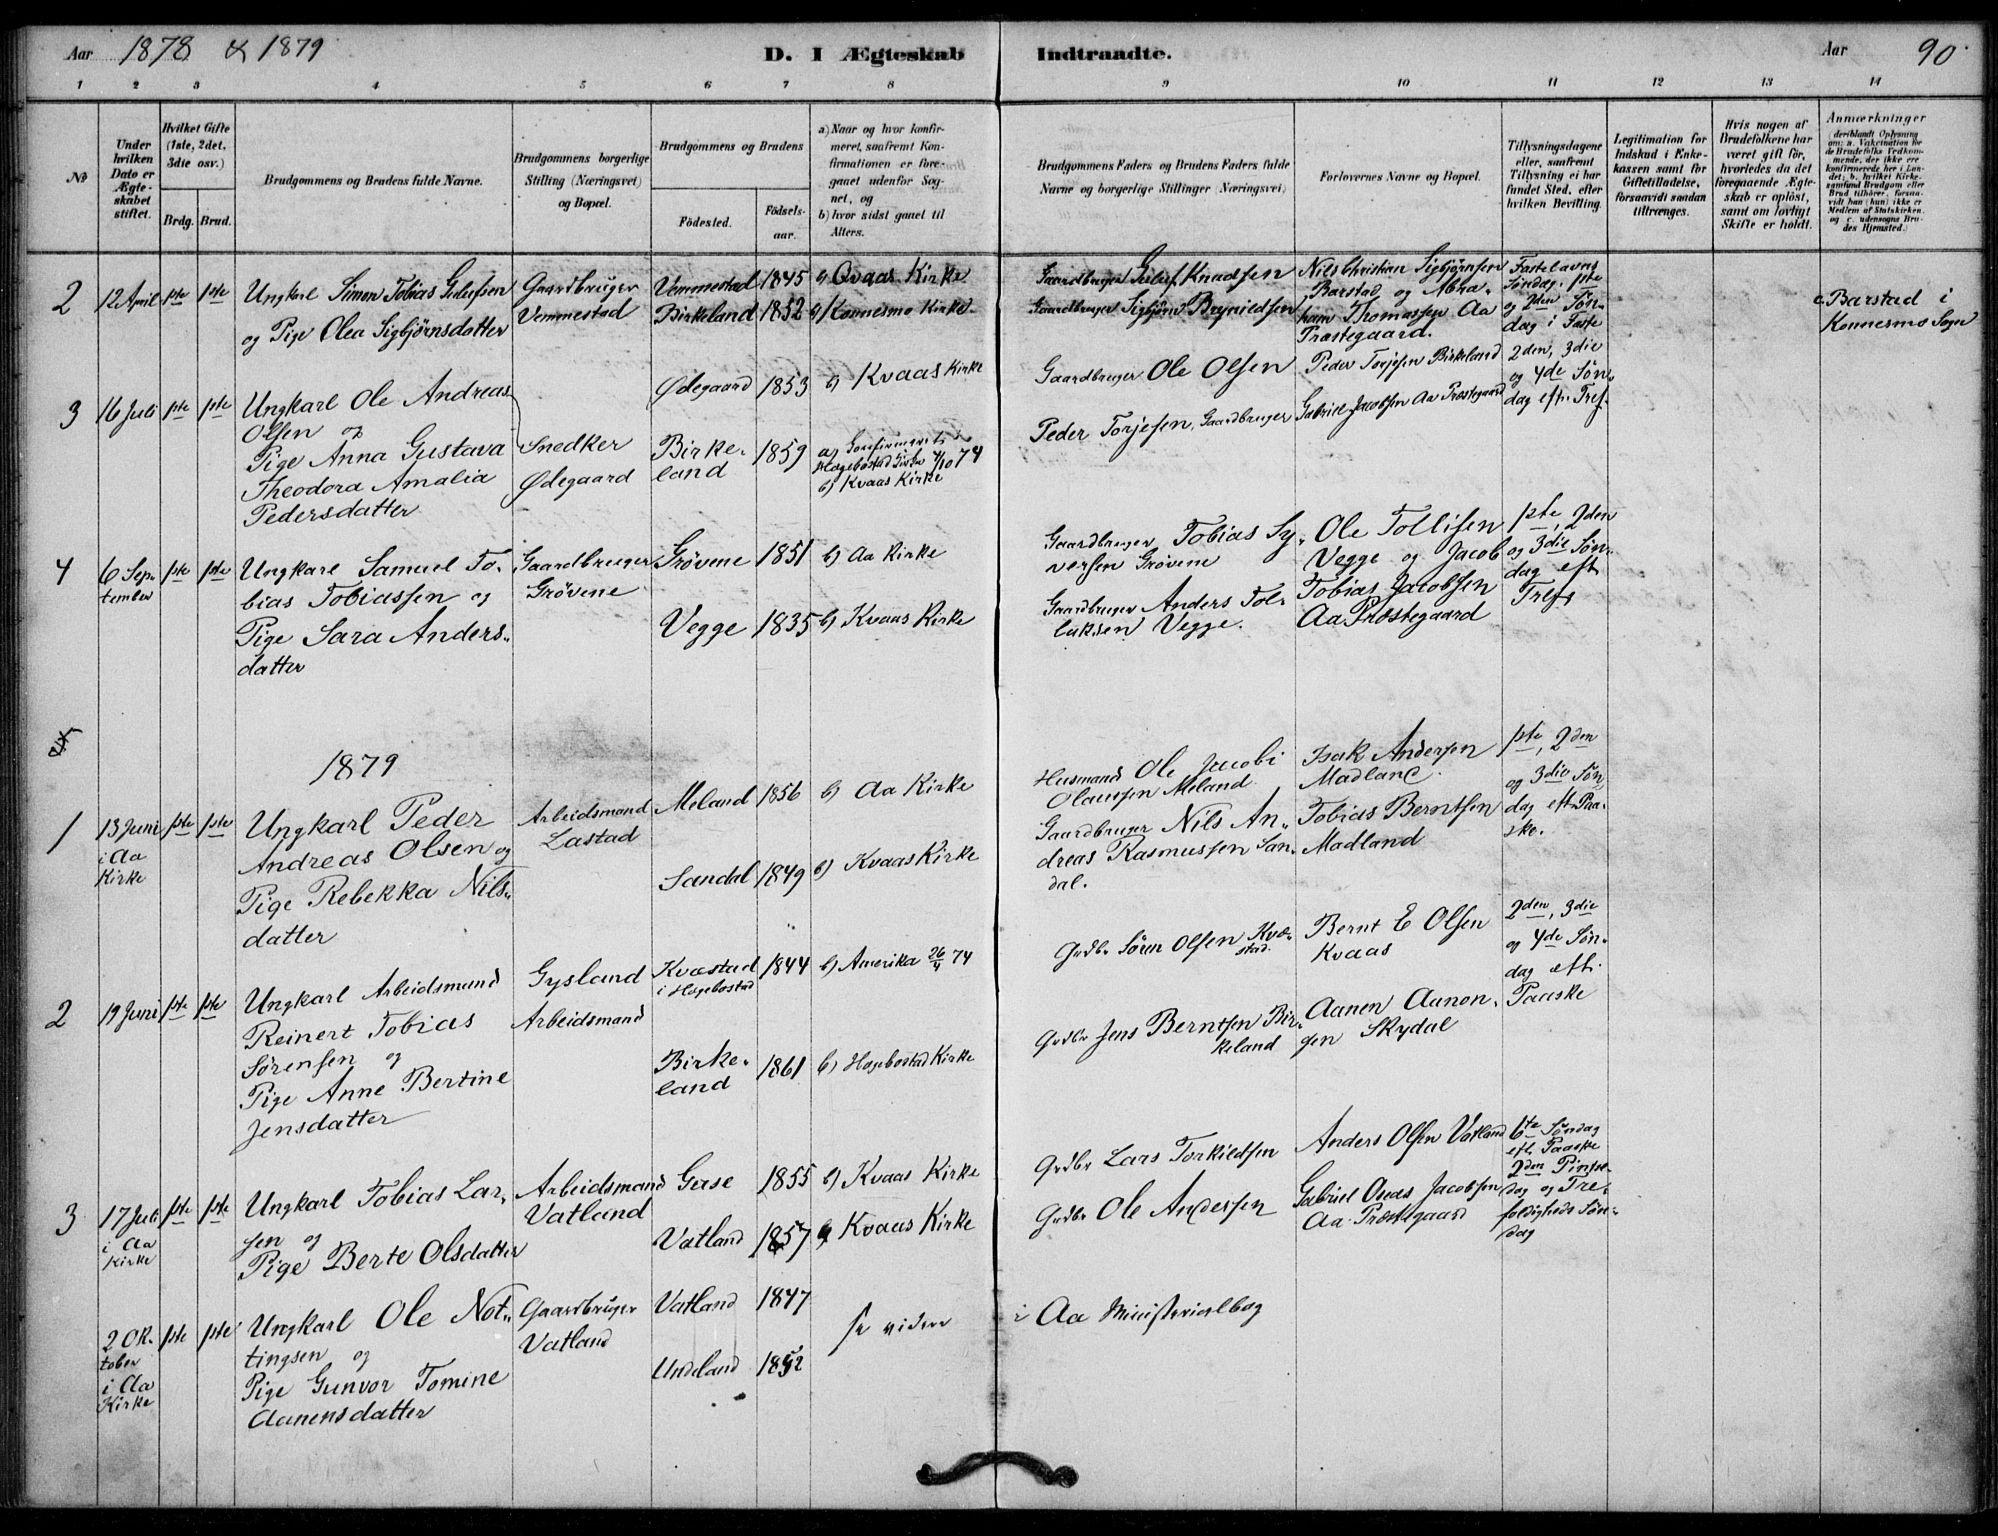 Aar 1878 & 1879
D. I Ægteskab Indtraadte.
Aar 90
1 2 3 4 5 6 7 8 9 10 11 12 13 14
No
Under hvilken Dato er Ægte-skabet stiftet.
Hvilket Gifte (1ste, 2det, 3die osv.)
Brdg. Brud.
Brudgommens og Brudens fulde Navne.
Brudgommens borgerlige Stilling (Næringsvei) og Bopæl.
Brudgommens og Brudens
Födested.
Födsels-aar.
a) Naar og hvor konfir-meret, saafremt Kon-firmationen er fore-gaaet udenfor Sog-net, og
b) hvor sidst gaaet til Alters.
Brudgommens Faders og Brudens Faders fulde Navne og borgerlige Stillinger (Næringsvei)
Forlovernes Navne og Bopæl.
Tillysningsdagene eller, saafremt Tillysning ei har fundet Sted, efter hvilken Bevilling.
Legitimation for Indskud i Enke-kassen samt for Giftetilladelse, forsaavidt saadan tiltrænges.
Hvis nogen af Brudefolkene har været gift för, hvorledes da det foregaaende Ægte-skab er oplöst, samt om lovligt Skifte er holdt.
Anmærkninger
(deriblandt Oplysning om: a. Vakcination for de Brudefolks Vedkom-mende, der ikke ere konfirmerede her i Lan-det; b. hvilket Kirke-samfund Brudgom eller Brud tilhörer, forsaa-vidt han (hun) ikke er Medlem af Statskirken, og c. udensogns Bru-des Hjemsted.)
2 12 April 1ste 1ste
Ungkarl Simon Tobias
og Pige Olea Sigbjørnsdatter
Gaardbruger
Vemmestad
Vemmestad 1845 b) Qvaas Kirke
Birkeland 1852 b) Konnesmo Kirke
Gaardbruger Knudsen
Gaardbruger Sigbjörn Brynildsen
Nils Christian Sigbjørnsen
Barstad og Abra-
ham Thomassen Aa
Præstegaard.
Fastelavns
Søndag, 1ste
og 2den Søn-
dag i Faste
c. Barstad i
Konnesmo Sogn
3 16 Juli 1ste 1ste
Ungkarl Ole Andreas
Olsen og
Pige Anna Gustava
Theodora Amalia
Pedersdatter
Snedker
Ødegaard
Ødegaard 1853 b) Kvaas Kirke
Birke-
land 1859
a) Confirmeret i
Hægebostad Kirke 4/10 74
b) Kvaas Kirke
Gaardbruger Ole Olsen
Peder Torjesen, Gaardbruger
Peder Torjesen Birkeland
Gabriel Jacobsen Aa Præstegaard
2den, 3die
og 4de Søn-
dag eft. Tref.
4 6 Sep-
tember 1ste 1ste
Ungkarl Samuel To-
bias Tobiassen og
Pige Sara Anders-
datter
Gaardbruger
Grövene
Grövene 1851 b) Aa Kirke
Vegge 1835 b) Kvaas Kirke
Gaardbruger Tobias Sy-
versen Grövene
Gaardbruger Anders Tol-
laksen Vegge.
Ole Tollisen
Vegge og Jacob
Tobias Jacobsen
Aa Præstegaard
1ste, 2den
og 3die Søn-
dag eft
Tref.
1879
1 13 Juni
i Aa
Kirke 1ste 1ste
Ungkarl Peder
Andreas Olsen og
Pige Rebekka Nils-
datter
Arbeidsmand
Lastad
Meland 1856 b) Aa Kirke
Sandal 1849 b) Kvaas Kirke
Husmand Ole Jacobi
Olaussen Meland
Gaardbruger Nils An-
dreas Rasmussen San-
dal.
Isak Andersen
Madland
Tobias Berntsen
Madland
1ste, 2den
og 3die Søn-
dag eft. Paa-
ske.
2 19 Juni 1ste 1ste
Ungkarl Arbeidsmand
Reinert Tobias
Sørensen og
Pige Anne Bertine
Jensdatter
Gysland
Arbeidsmand
Kvæstad
i Hægebostad 1844 b) Amerika 26/4 74
Birke-
land 1861 b) Hægebostad Kirke
Grdbr Sören Olsen Kvæ-
stad.
Grdbr Jens Berntsen Bir-
keland
Bernt E Olsen
Kvaas
Aanen Aanon-
sen Skydal
2den, 3die
og 4de Søn-
dag eft.
Paaske
3 17 Juli
i Aa
Kirke 1ste 1ste
Ungkarl Tobias Lar-
sen og
Pige Berte Olsdatter
Arbeidsmand
Vatland
1855 b) Kvaas Kirke
Vatland 1857 b) Kvaas Kirke
Grdbr Lars Torkildsen
Grdbr Ole Andersen
Anders Olsen Vatland
Gabriel Oseas Jacobsen
Aa Præstegaard
6te Søndag
eft. Paaske
2den Pinse-
dag og Tre-
foldigheds Søn-
dag
2 Ok-
tober
i Aa
Kirke 1ste 1ste
Ungkarl Ole Not-
tingsen og
Pige Gunvor Tomine
Aanensdatter
Gaardbruger
Vatland
Vatland 1847
Undeland 1852
se videre i Aa Ministerialbog